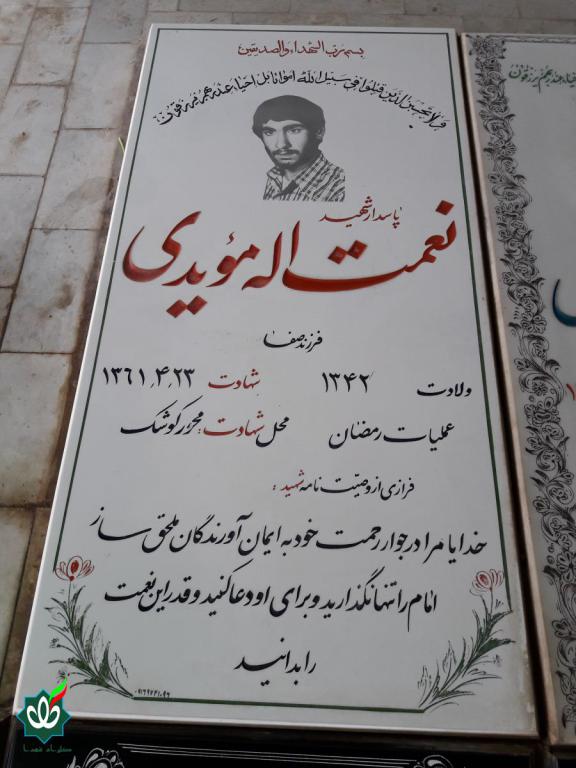 بسم رب الشهداء والصدیقین
ولا تحسبن الذین قتلوا فی سبیل الله امواتا بل احیاء عند ربهم یرزقون
پاسدار شهید
نعمت اله مؤیدی
فرزند صفا
ولادت ۱۳۴۲ شهادت ۱۳۶۱,۴,۲۳
عملیات رمضان محل شهادت: محور کوشک
فرازی از وصیت نامه شهید:
خدایا مرا در جوار رحمت خود به ایمان آورندگان ملحق ساز
امام را تنها نگذارید و برای او دعا کنید و قدر این نعمت
را بدانید